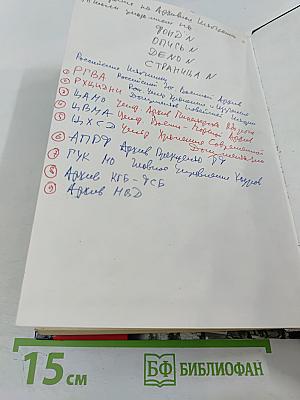 на Архивные Источники
ФОНД N
ОПИСЬ N
ДЕЛО N
СТРАНИЦА N
Российские
① РГВА Российский Гос. Военный Архив
② РХЦИДНИ Рос. Центр Хранения и Изучения
Документов Новейшей Истории
③ ЦАМО Центр. Архив Министерства Обороны
④ ЦВМА Центр. Военно-Морской Архив
⑤ ЦХСД Центр Хранения Современной
Документации
⑥ АПРФ Архив Президента РФ
⑦ ГУК МО Главное Управление Кадров
⑧ Архив КГБ-ФСБ
⑨ Архив МВД
15 см
БФ БИБЛИОФАН